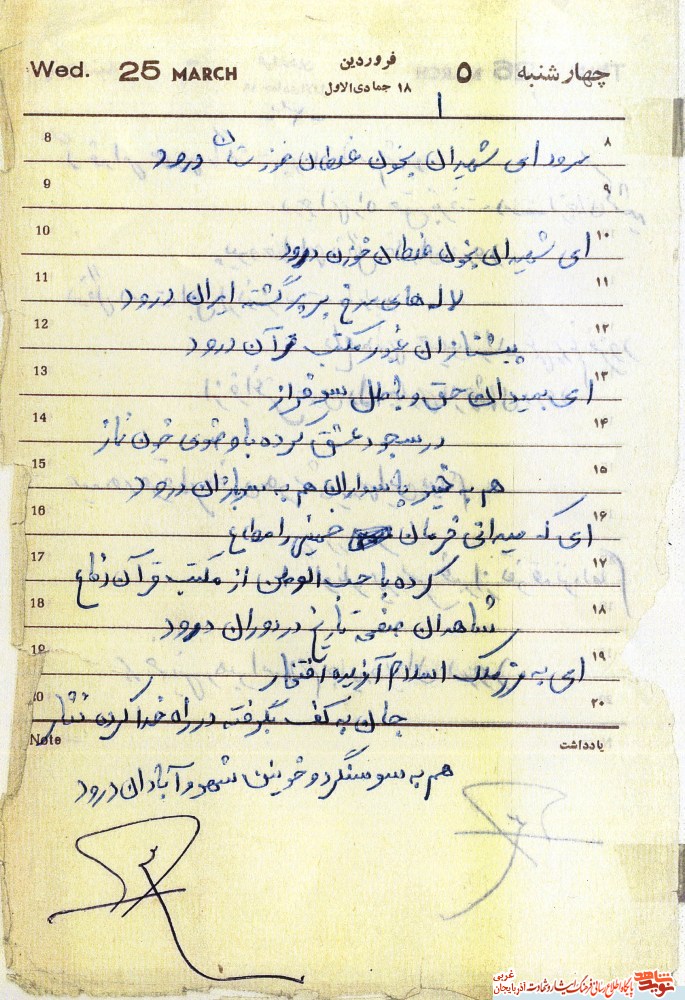 Wed. 25 MARCH فروردین ۵ چهارشنبه
۱۸ جمادی‌الاول
8 سرود ای شهیدان بخون غلطان خوزستان درود ۸
9 ۹
10 ای شهیدان بخون غلطان خوزستان درود ۱۰
11 لاله های سرخ پرپر گشته ایران درود ۱۱
12 پیشتازان غیور مکتب قرآن درود ۱۲
13 ای بمیدان حق و باطل سرفراز ۱۳
14 در سجود عشق کرده با وضوی خون نماز ۱۴
15 هم به خیل پاسداران هم به سربازان درود ۱۵
16 ای که فرمان خمینی را مطاع ۱۶
17 کرده با حب الوطن از مکتب قرآن دفاع ۱۷
18 شاهدان صفحه تاریخ در دوران درود ۱۸
19 ای به ملک اسلام آفریده افتخار ۱۹
20 جان به کف بگرفته در راه خدا کردن نثار ۲۰
Note یادداشت
هم به سوسنگرد و خونین شهر و آبادان درود
نوید شاهد
پایگاه اطلاع رسانی فرهنگ ایثار و شهادت آذربایجان غربی